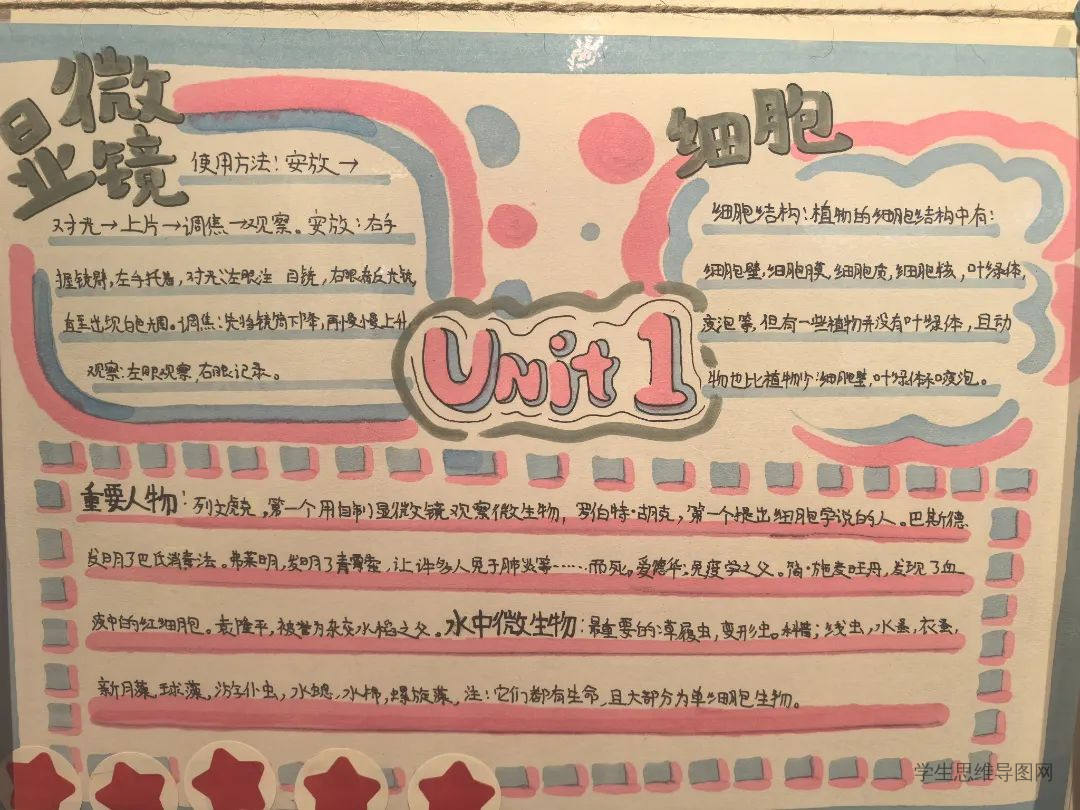 显微镜
使用方法：安放→
对光→上片→调焦→观察。安放：右手
握镜臂，左手托着，对光：左眼注 目镜，右眼看反光镜，
直至出现白色光圈。调焦：先将镜筒下降，再慢慢上升
观察：左眼观察，右眼记录。
细胞
细胞结构：植物的细胞结构中有：
细胞壁，细胞膜，细胞质，细胞核，叶绿体，
液泡等，但有一些植物并没有叶绿体，且动
物也比植物少：细胞壁，叶绿体和液泡。
Unit 1
重要人物：列文虎克，第一个用自制显微镜观察微生物，罗伯特·胡克，第一个提出细胞学说的人。巴斯德，
发明了巴氏消毒法。弗莱明，发明了青霉素，让许多人免于肺炎等……而死。爱德华：免疫学之父。简·施麦旺丹，发现了血
液中的红细胞。袁隆平，被誉为杂交水稻之父。水中微生物：最重要的：草履虫，变形虫。 线虫，水蚤，
新月藻，球藻， 水螅，水绵，螺旋藻，注：它们都有生命，且大部分为单细胞生物。
学生思维导图网